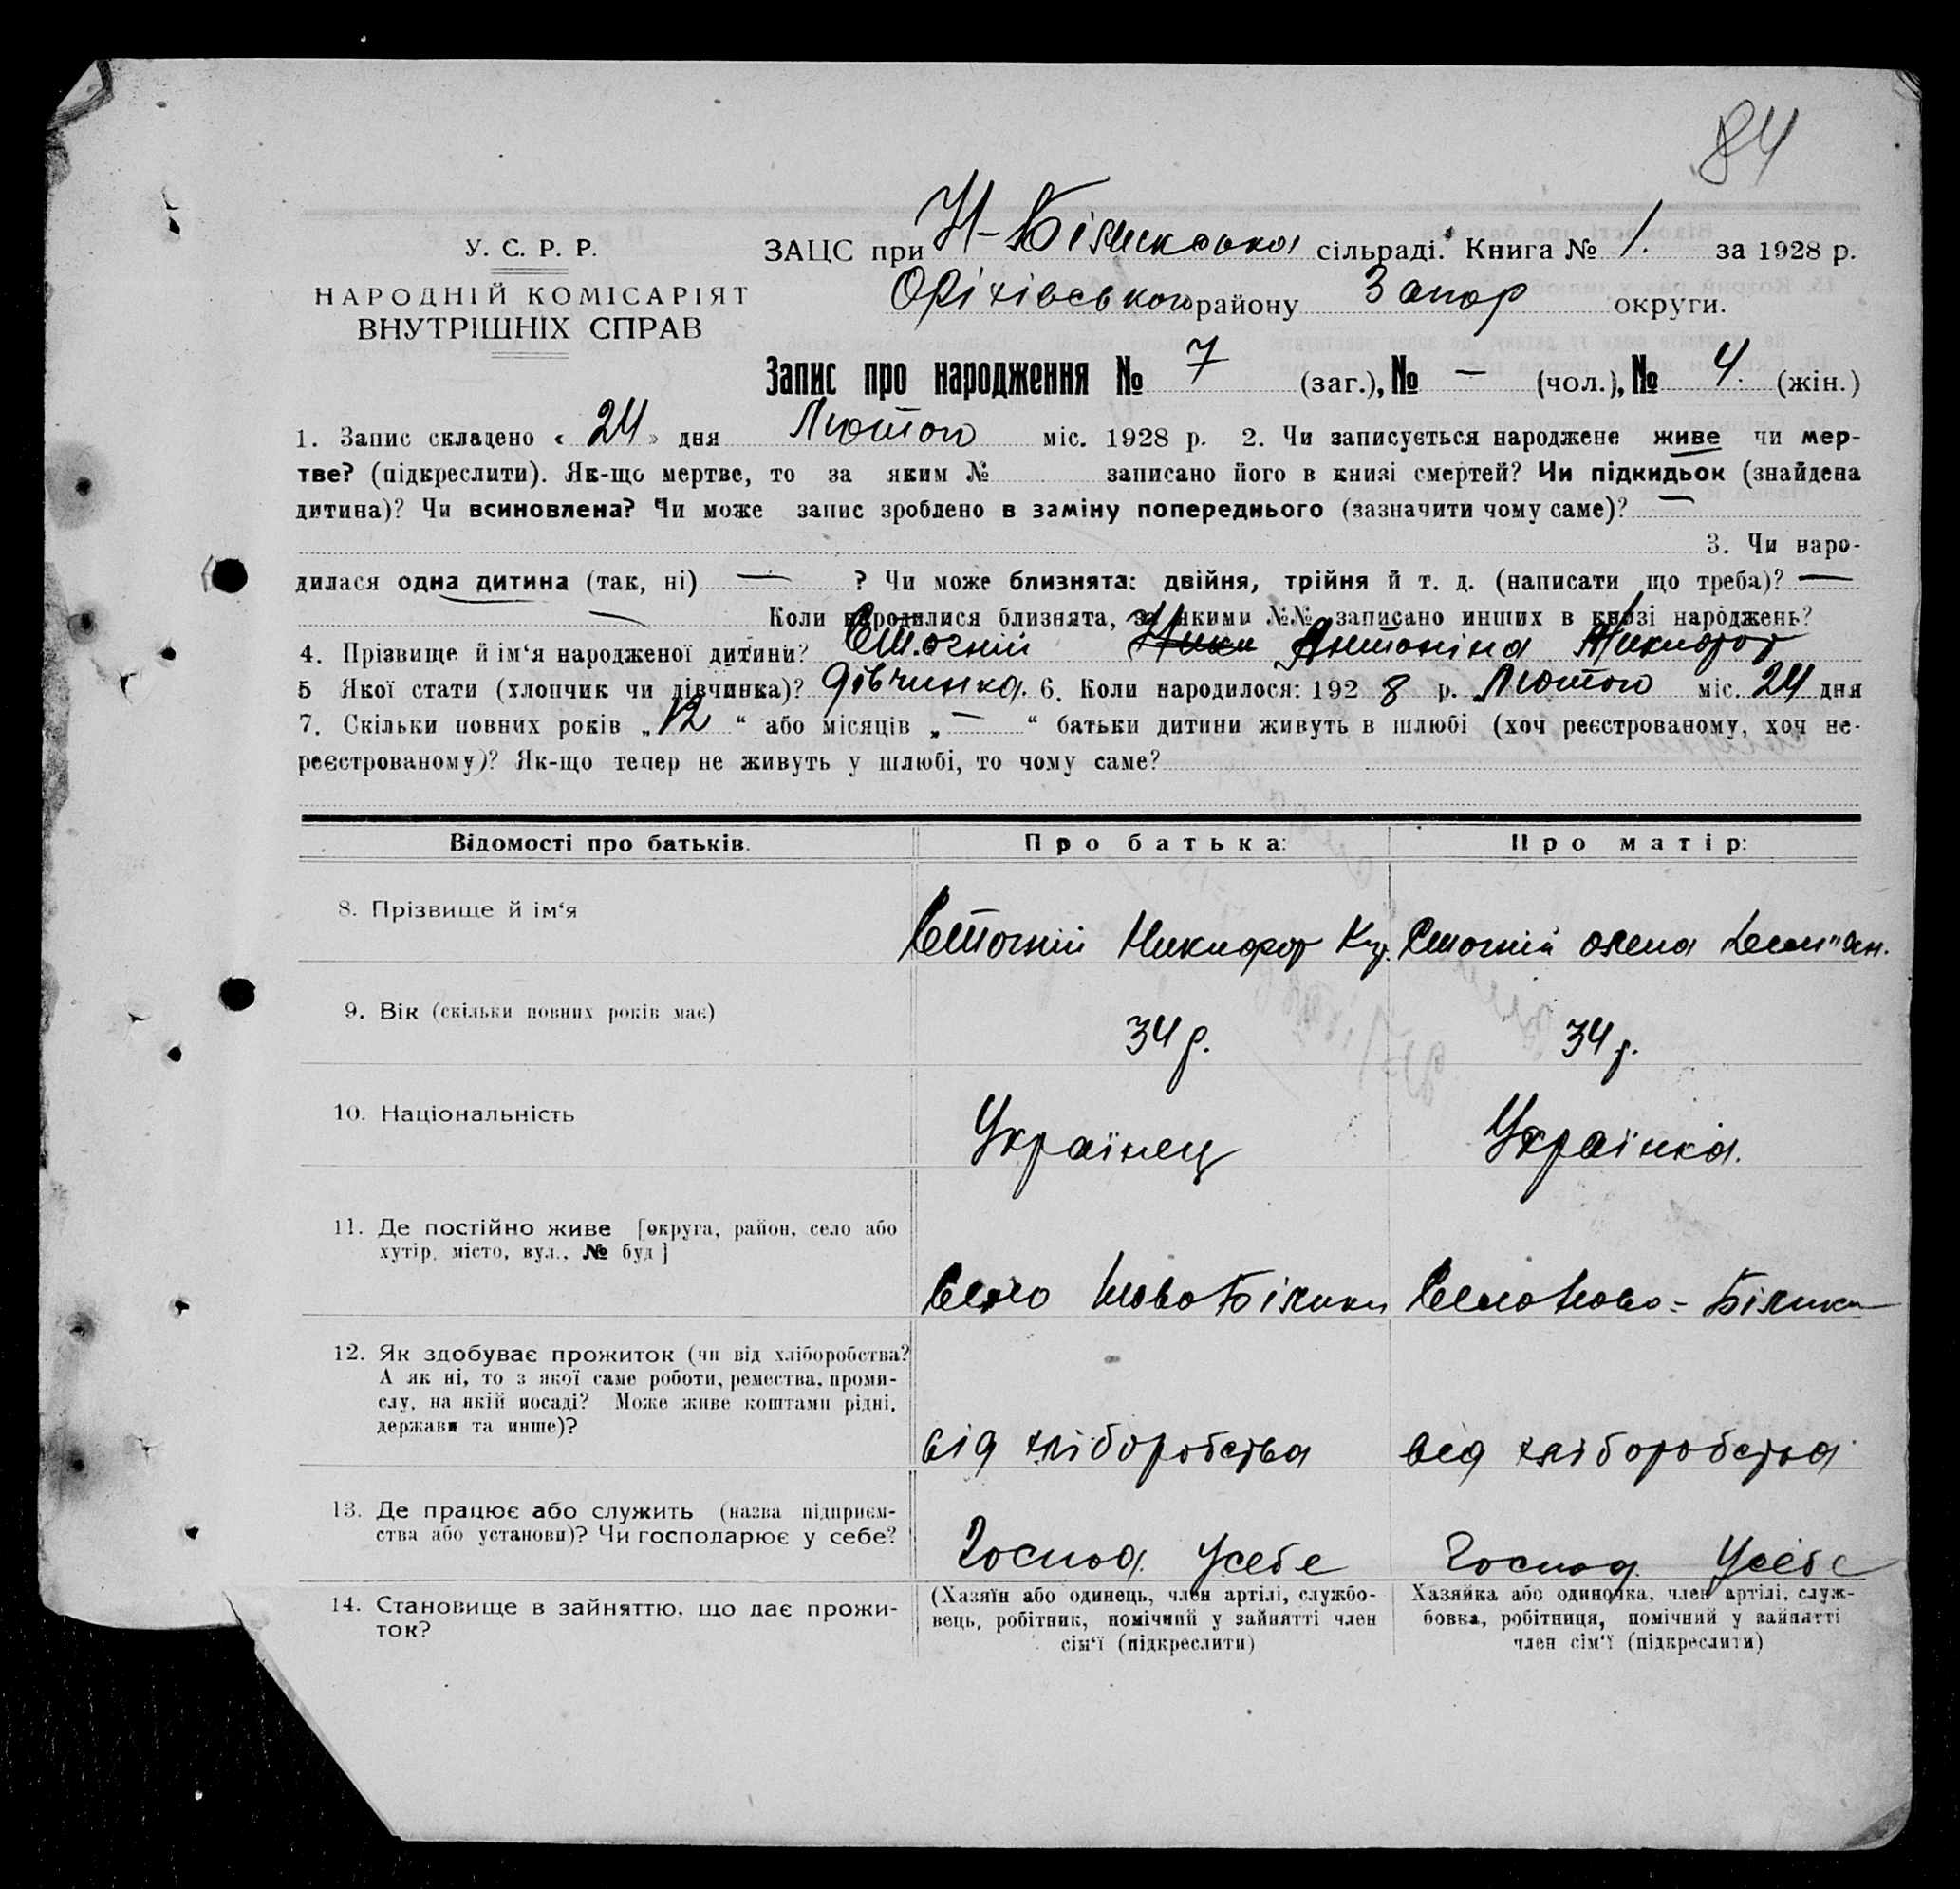 84
У. С. Р. Р.
НАРОДНІЙ КОМІСАРІЯТ
ВНУТРІШНІХ СПРАВ
ЗАЦС при Н-Біликівська сільраді. Книга № 1. за 1928 р.
Оріхівського району Запор округи.
Запис про народження № 7 (заг.), № — (чол.), № 4. (жін.)
1. Запис складено « 24 » дня Лютого міс. 1928 р. 2. Чи записується народжене живе чи мер-
тве? (підкреслити). Як-що мертве, то за яким № записано його в книзі смертей? Чи підкидьок (знайдена
дитина)? Чи всиновлена? Чи може запис зроблено в заміну попереднього (зазначити чому саме)? —
3. Чи наро-
дилася одна дитина (так, ні) — ? Чи може близнята: двійня, трійня й т. д. (написати що треба)? —
— Коли народилися близнята, за якими №№ записано инших в книзі народжень?
4. Прізвище й ім‘я народженої дитини? Стогній Антоніна Никифор
5 Якої стати (хлопчик чи дівчинка)? дівчинка. 6. Коли народилося: 192 8 р. Лютого міс. 24 дня
7. Скільки повних років „ 12 “ або місяців „ — “ батьки дитини живуть в шлюбі (хоч реєстрованому, хоч не-
реєстрованому)? Як-що тепер не живуть у шлюбі, то чому саме?
Відомості про батьків. Про батька: Про матір:
8. Прізвище й ім‘я Стогній Никифор Стогній Олена
9. Вік (скільки повних років має) 34 р. 34 р.
10. Національність Українец Українка.
11. Де постійно живе [округа, район, село або
хутір, місто, вул., № буд]
Село Ново Білики Село Ново-Білики
12. Як здобуває прожиток (чи від хліборобства?
А як ні, то з якої саме роботи, ремества, проми-
слу, на якій посаді? Може живе коштами рідні,
держави та инше)?
від хліборобства від хліборобства
13. Де працює або служить (назва підприєм-
ства або установи)? Чи господарює у себе?
Господ. Усебе Господ. Усебе
14. Становище в зайняттю, що дає прожи-
ток?
(Хазяїн або одинець, член артілі, службо-
вець, робітник, помічний у зайнятті член
сім‘ї (підкреслити)
Хазяйка або одиночка, член артілі, служ-
бовка, робітниця, помічний у зайнятті
член сім‘ї (підкреслити)